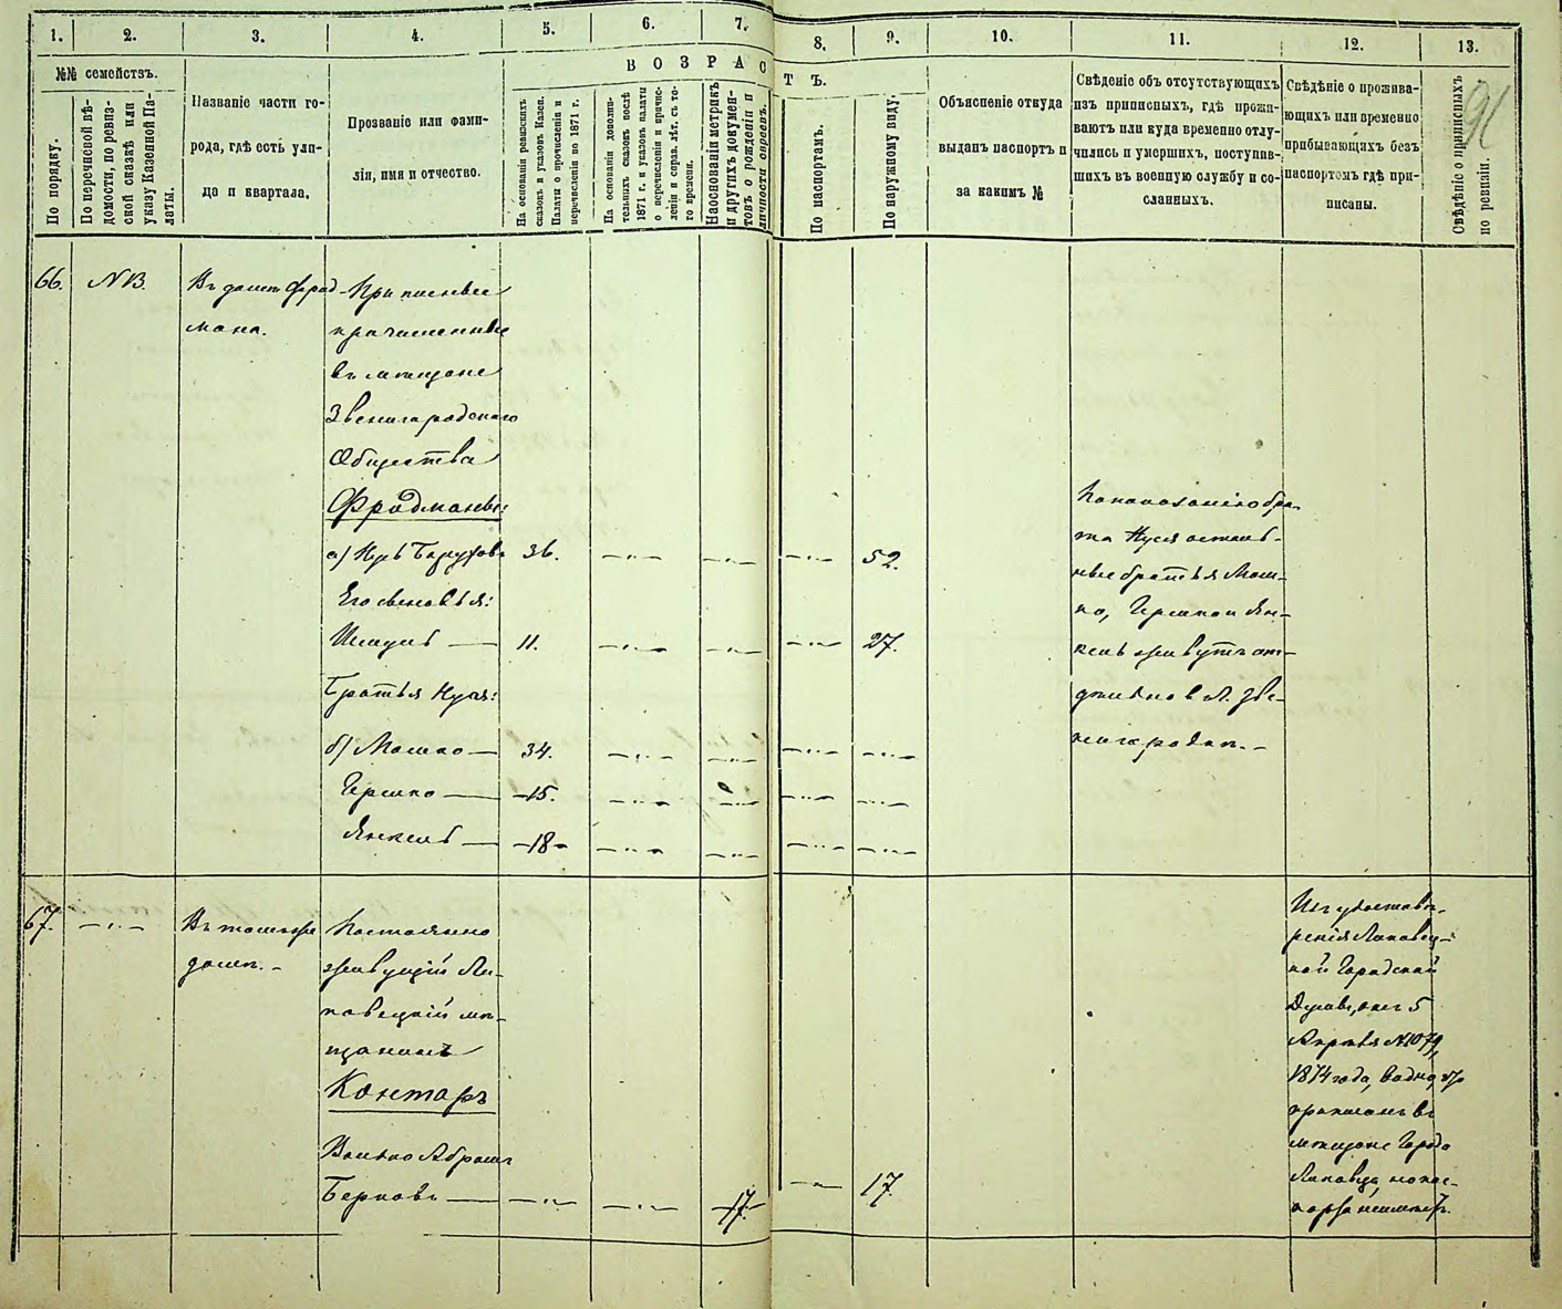 1. 2. 3. 4. 5. 6. 7. 8. 9. 10. 11. 12. 13.
91
№№ семействъ.
По порядку.
По перечневой вѣ-
домости, по ревиз-
ской сказкѣ или
указу Казенной Па-
латы.
Названіе части го-
рода, гдѣ есть ули-
ца и квартала.
Прозваніе или фами-
лія, имя и отчество.
ВОЗРАСТЪ.
На основаніи ревизскихъ
сказокъ и указовъ Казен.
Палаты о причисленіи и
перечисленіи по 1871 г.
На основаніи дополни-
тельныхъ сказокъ послѣ
1871 г. и указовъ палаты
о перечисленіи и причис-
леніи и справ. лѣт. съ то-
го времени.
На основаніи метрикъ
и другихъ докумен-
товъ о рожденіи и
личности евреевъ.
По паспортамъ.
По наружному виду.
Объясненіе откуда
выданъ паспортъ и
за какимъ №
Свѣденіе объ отсутствующихъ
изъ приписныхъ, гдѣ прожи-
ваютъ или куда временно отлу-
чились и умершихъ, поступив-
шихъ въ военную службу и со-
сланныхъ.
Свѣдѣніе о прожива-
ющихъ или временно
прибывающихъ безъ
паспортомъ гдѣ при-
писаны.
Свѣдѣніе о приписныхъ
по ревизіи.
66. NB.
Въ домѣ Фрад-
мана.
Приписные
причисленные
въ мѣщане
Звенигородскаго
Общества
Фрадманы:
а) Нусь Баруховъ 36. 52.
Его сыновья:
Шмуль 11. 27.
Братья Нуся:
б) Мошко 34.
Гершко 15.
Янкель 18
По показанію бра-
та Нуся осталь-
ные братья Мош-
ко, Гершко и Ян-
кель живутъ от-
дельно в г. Зве-
нигородкѣ.
67.
Въ томъ же
домѣ.
Постоянно
живущій Ли-
повецкій мѣ-
щанинъ
Контаръ
Волько Абрамъ
Берковъ 17. 17.
Изъ удостовѣ-
ренія Липовец-
кой Городской
Думы, отъ 5
Апрѣля №1079,
1874 года, видно, что
приписанъ въ
мѣщане Города
Липовца, но пас-
порта неимѣетъ.